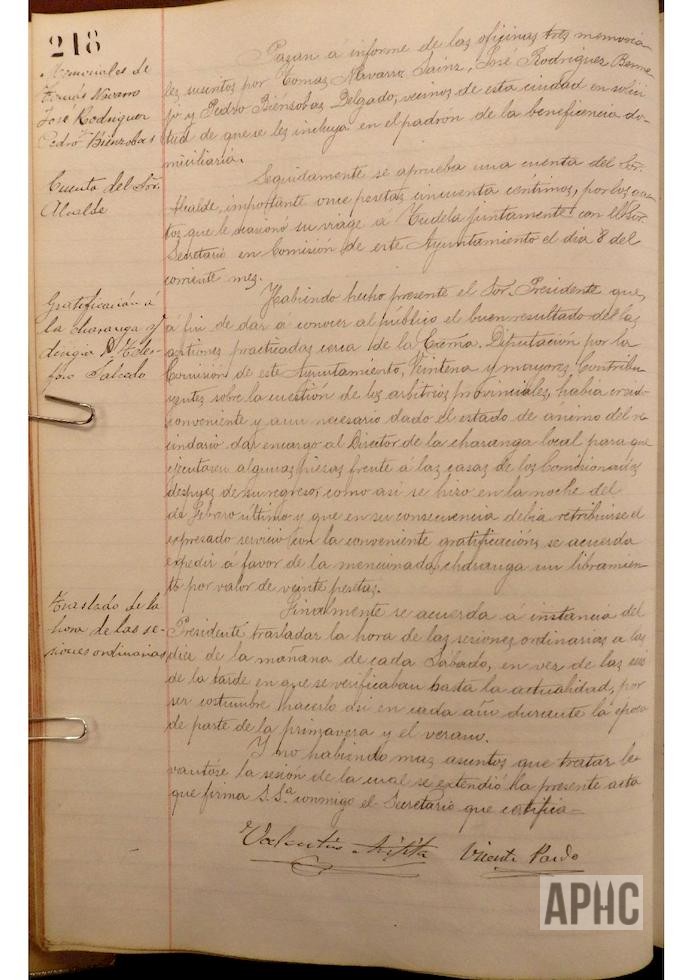 218
Memoriales de
Tomás Navarro
José Rodriguez
Pedro Bienzobas
Cuenta del Sor.
Alcalde
Gratificación á
la charanga q
dirigia D. Teles-
foro Salcedo
Traslado de la
hora de las se-
siones ordinarias
Pasan á informe de las oficinas tres memoria-
les suscritos por Tomas Navarro Sainz, José Rodriguez Berme-
jo y Pedro Bienzobas Delgado, vecinos de esta ciudad en solici-
tud de que se les incluya en el padron de la beneficencia do-
miciliaria.
Seguidamente se aprueba una cuenta del Sor.
Alcalde, importante once pesetas cincuenta centimos, por los gas-
tos que le ocasionó su viage a Tudela juntamente con el Sor.
Secretario en Comisión de este Ayuntamiento el dia 8 del
corriente mes.
Habiendo hecho presente el Sor. Presidente que,
á fin de dar á conocer al público el buen resultado de las
gestiones practicadas cerca de la Excma. Diputación por la
Comisión de este Ayuntamiento, Veintena y mayores Contribu-
yentes sobre la cuestión de los arbitrios provinciales, habia creido
conveniente y aun necesario dado el estado de ánimo del ve-
cindario dar encargo al Director de la charanga local para que
ejecutasen algunas piezas frente á las casas de los Comisionados
despues de su regreso; como asi se hizo en la noche del
de Febrero último y que en su consecuencia debia retribuirse el
expresado servicio con la conveniente gratificación, se acuerda
expedir á favor de la mencionada charanga un libramien-
to por valor de veinte pesetas.
Finalmente se acuerda á instancia del
Presidente trasladar la hora de las sesiones ordinarias a las
diez de la mañana de cada Sábado, en vez de las seis
de la tarde en que se verificaban hasta la actualidad, por
ser costumbre hacerlo asi en cada año durante la época
de parte de la primavera y el verano.
Y no habiendo mas asuntos que tratar le-
vantóse la sesión de la cual se extendió la presente acta
que firma S. Sª. conmigo el Secretario que certifica-
Valentin Vicente Pardo
APHC